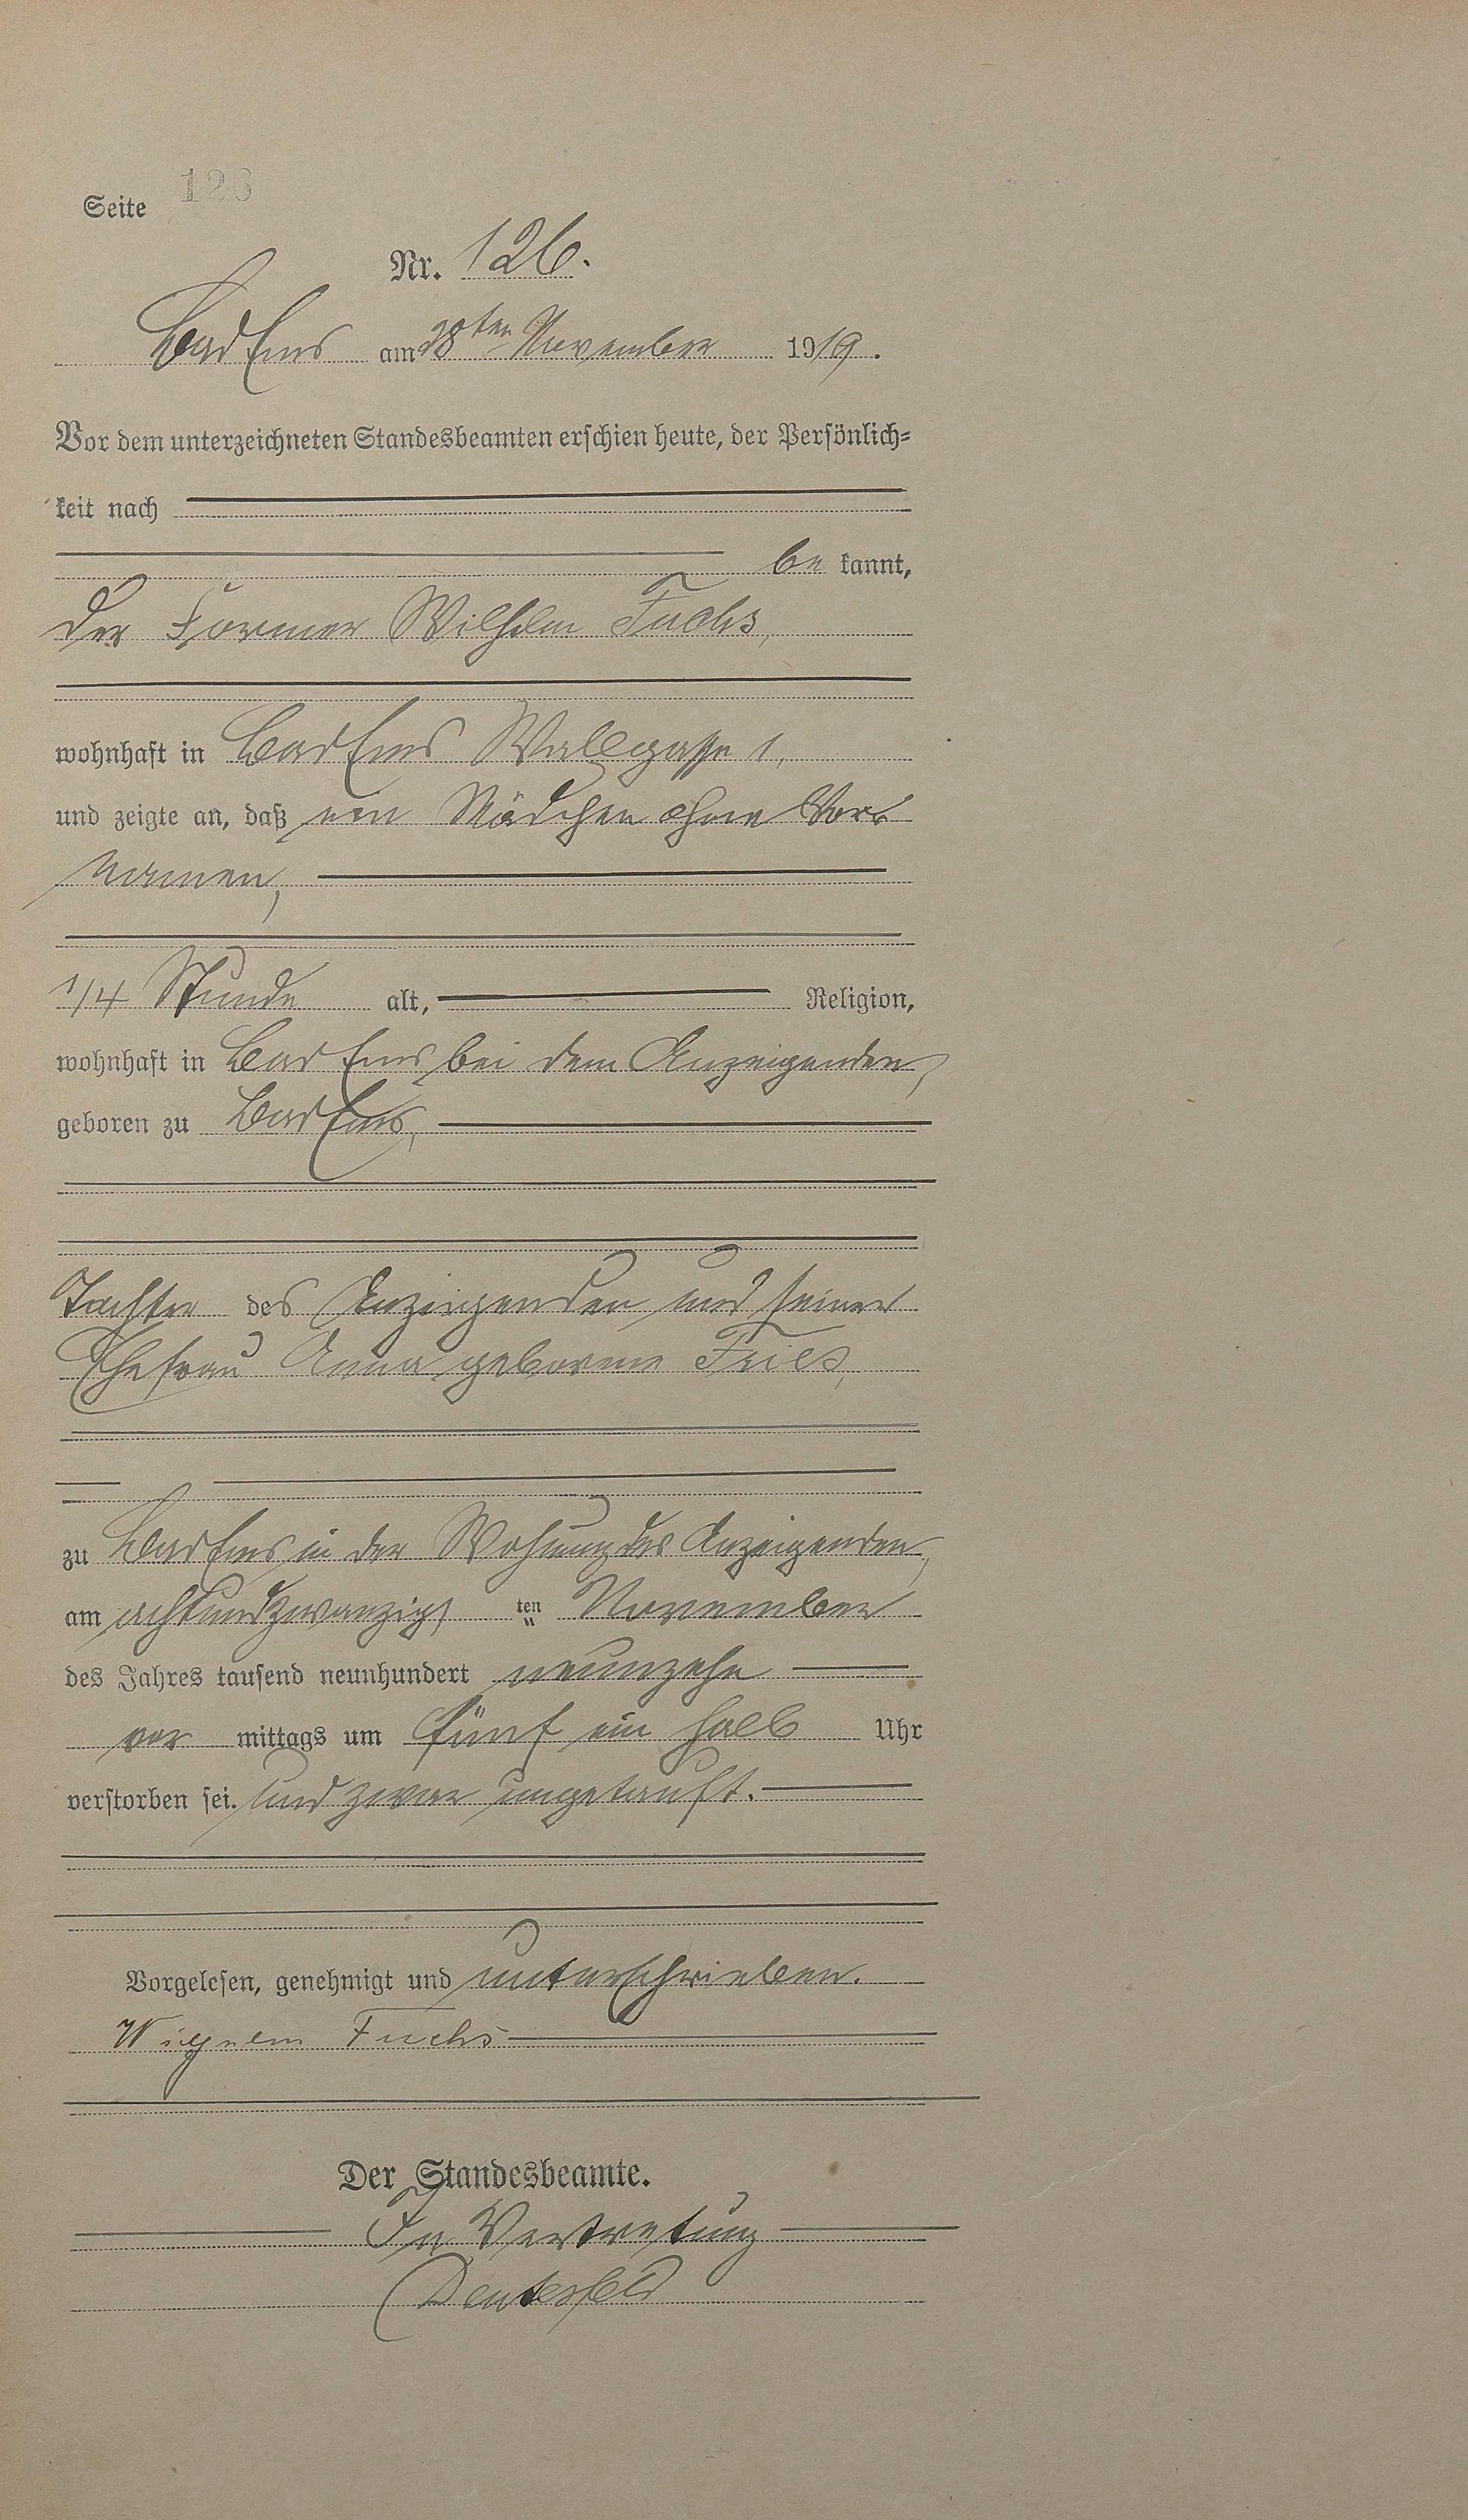 Seite 126
Nr. 126.
Bad Ems am 28ten November 1919.
Vor dem unterzeichneten Standesbeamten erschien heute, der Persönlich-
keit nach
be kannt,
der Former Wilhelm Fuchs,
wohnhaft in Bad Ems Wallgasse 1,
und zeigte an, daß ein Mädchen ohne Vor
namen,
1/4 Stunde alt, Religion,
wohnhaft in Bad Ems bei dem Anzeigenden,
geboren zu Bad Ems,
Tochter des Anzeigenden und seiner
Ehefrau Anna geborene Fries,
zu Bad Ems in der Wohnung des Anzeigenden,
am achtundzwanzigs ten November
des Jahres tausend neunhundert neunzehn
vor mittags um fünf ein halb Uhr
verstorben sei. und zwar ungetauft.
Vorgelesen, genehmigt und unterschrieben.
Wilhelm Fuchs
Der Standesbeamte.
In Vertretung